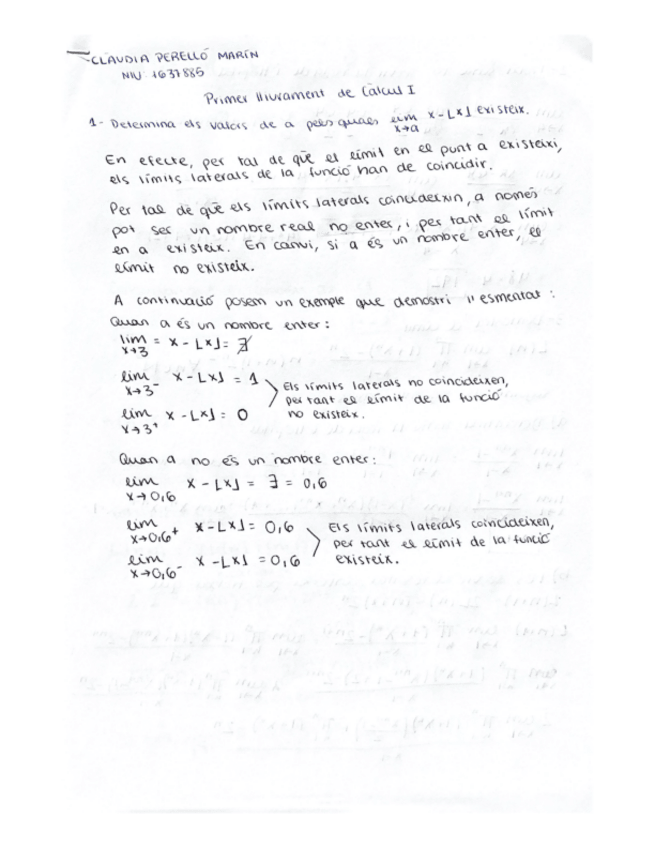 CLÀUDIA PERELLÓ MARÍN
NIU: 1637885
Primer lliurament de Càlcul I
1- Determina els valors de a pels quals lim x→a x-⌊x⌋ existeix.
En efecte, per tal de què el límit en el punt a existeixi,
els límits laterals de la funció han de coincidir.
Per tal de què els límits laterals coincideixin, a només
pot ser un nombre real no enter, i per tant el límit
en a existeix. En canvi, si a és un nombre enter, el
límit no existeix.
A continuació posem un exemple que demostri l'esmentat:
Quan a és un nombre enter:
lim x→3 = x-⌊x⌋ = ∄
lim x→3⁻ x-⌊x⌋ = 1
lim x→3⁺ x-⌊x⌋ = 0
Els límits laterals no coincideixen,
per tant el límit de la funció
no existeix.
Quan a no és un nombre enter:
lim x→0,6 x-⌊x⌋ = ∃ = 0,6
lim x→0,6⁺ x-⌊x⌋ = 0,6
lim x→0,6⁻ x-⌊x⌋ = 0,6
Els límits laterals coincideixen,
per tant el límit de la funció
existeix.